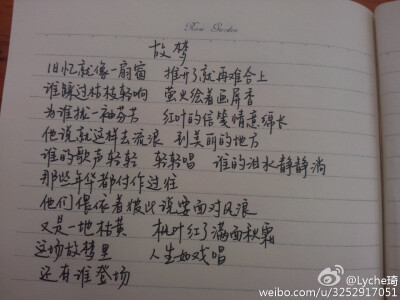 Rose Garden
故梦
旧忆就像一扇窗 推开了就再难合上
谁踩过枯枝轻响 萤火绘着画屏香
为谁拢一袖芬芳 红叶的信笺情意绵长
他说就这样去流浪 到美丽的地方
谁的歌声轻轻 轻轻唱 谁的泪水静静淌
那些年华都付作过往
他们偎依着彼此说要面对风浪
又是一地枯黄 枫叶红了满面秋霜
这场故梦里 人生如戏唱
还有谁登场
@Lyche琦
weibo.com/u/3252917051